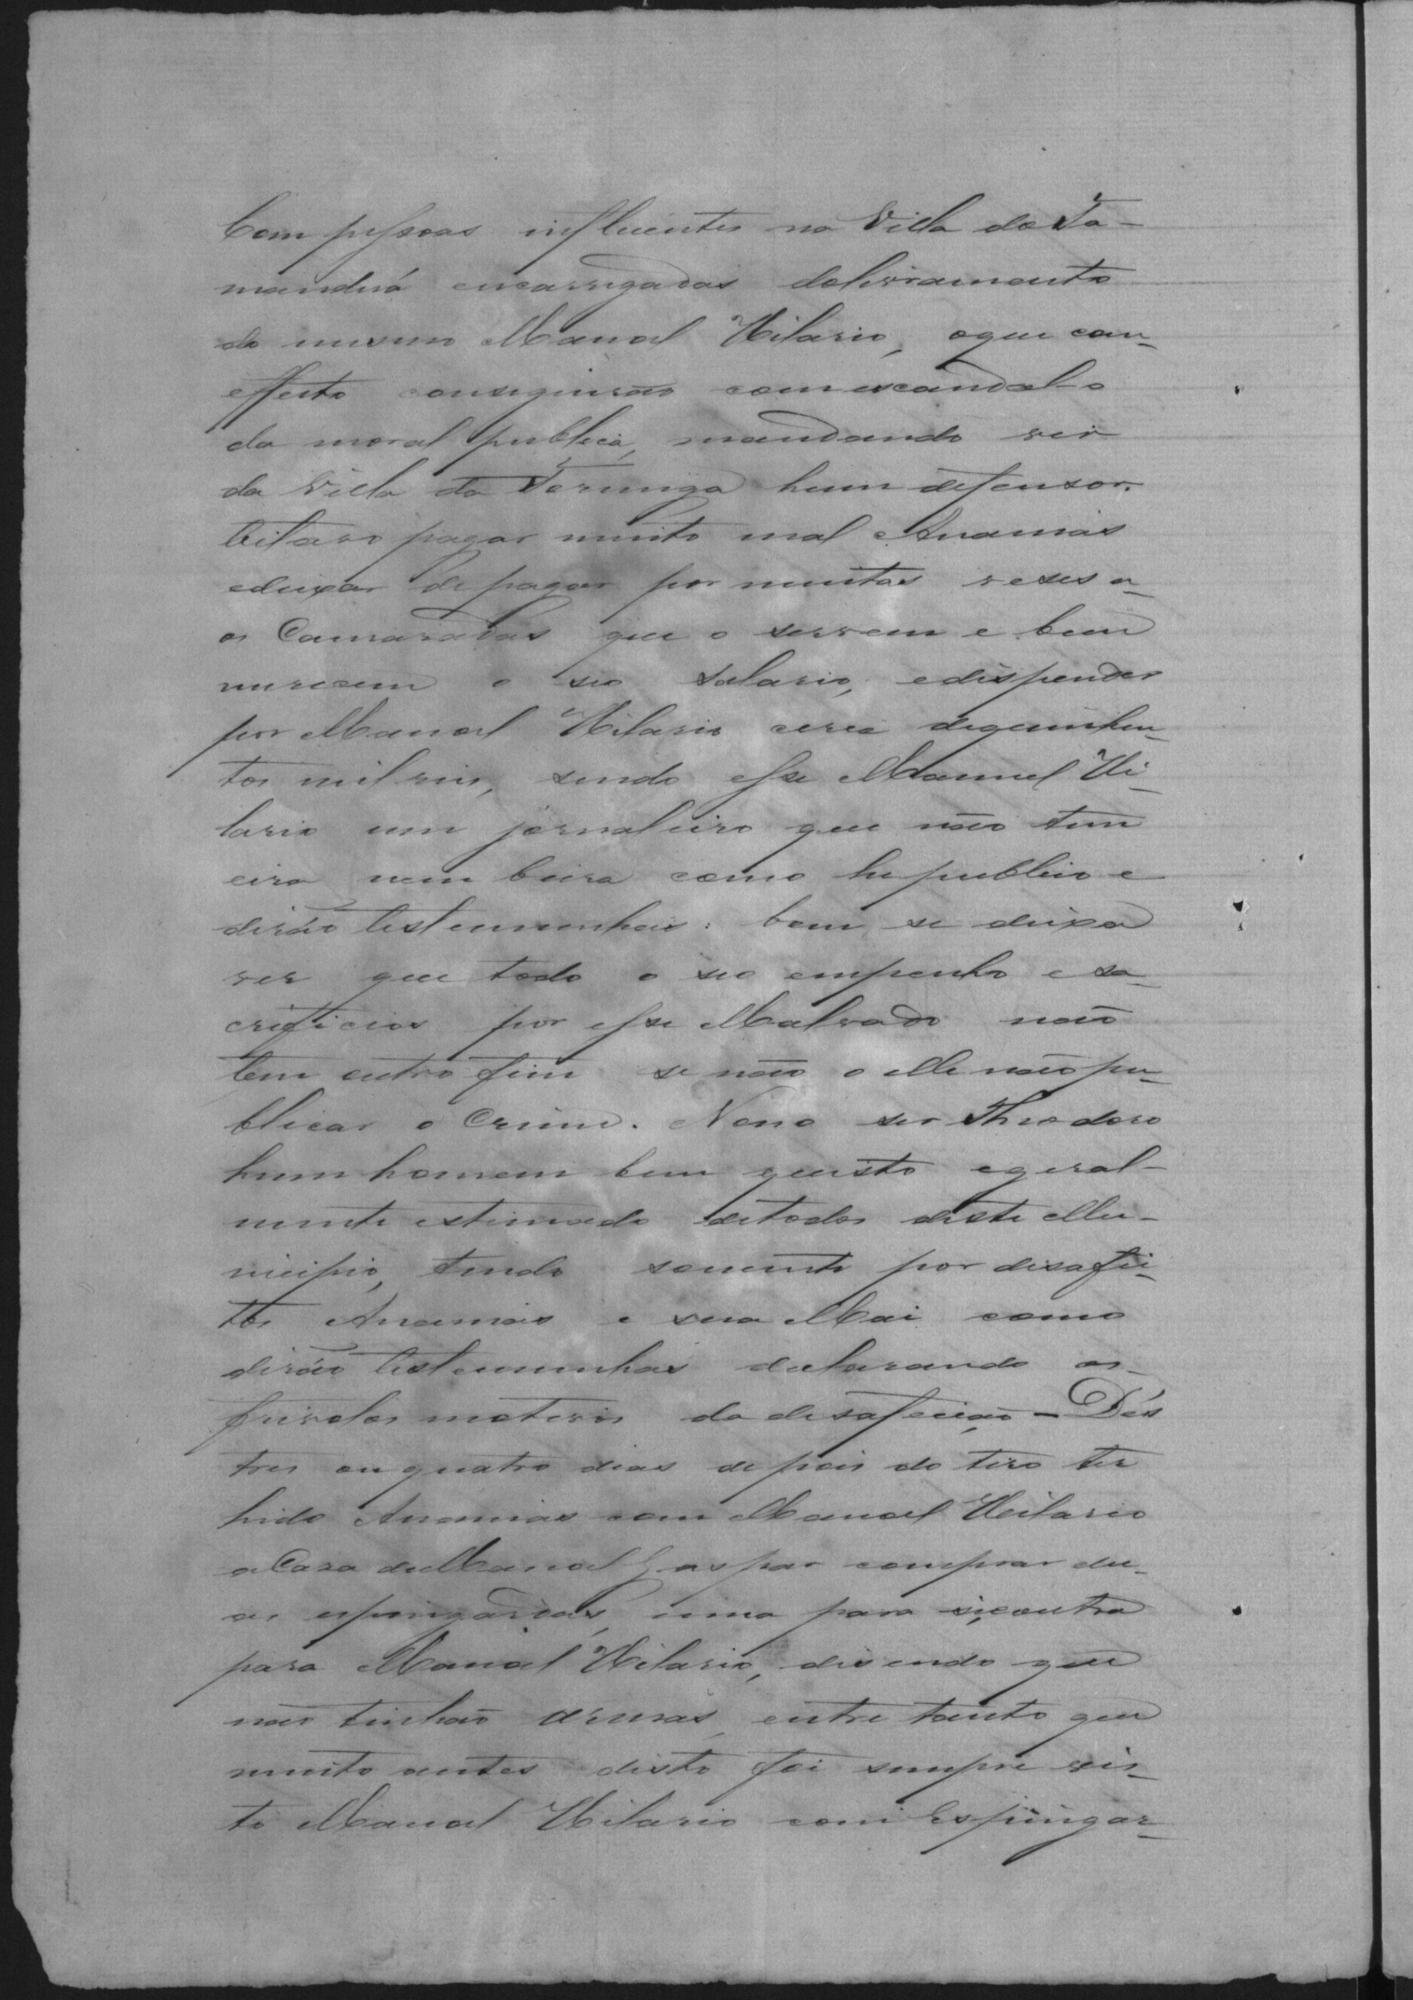 Com pessoas influentes na Villa de Ta-
manduá encarregadas dolivramento
do mesmo Manoel Hilario, oque com
effeito conseguirão com escandalo
da moral publica, mandando vir
da Villa da Formiga hum defensor.
Oitavo pagar muito mal Ananias
edeixar de pagar por muitas veses a-
os Camaradas que o servem e bem
merecem o seo salario, edispender
por Manoel Hilario cerca dequinhen-
tos mil reis, sendo esse Manuel Hi-
lario um jornaleiro que não tem
eira nem beira como he publico e
dirão testemunhas: bem se deixa
ver que todo o seo empenho e sa-
crificios por esse Malvado não
tem outro fim se não o elle não pu-
blicar o Crime. Nono ser Theodoro
hum homem bem quisto egeral-
mente estimado detodos deste Mu-
nicipio, tendo somente por desafei-
tos Ananias e sua Mai como
dirão testemunhas declarando os
frivolos motivos da desafeição – Dés
tres ou quatro dias depois do tiro ter
hido Ananias com Manoel Hilario
a Casa deManoel Gaspar comprar du-
as espingardas, uma para si, e outra
para Manoel Hilario, disendo que
não tinhão armas, entre tanto que
muito antes disto foi sempre vis-
to Manoel Hilario com Espingar-